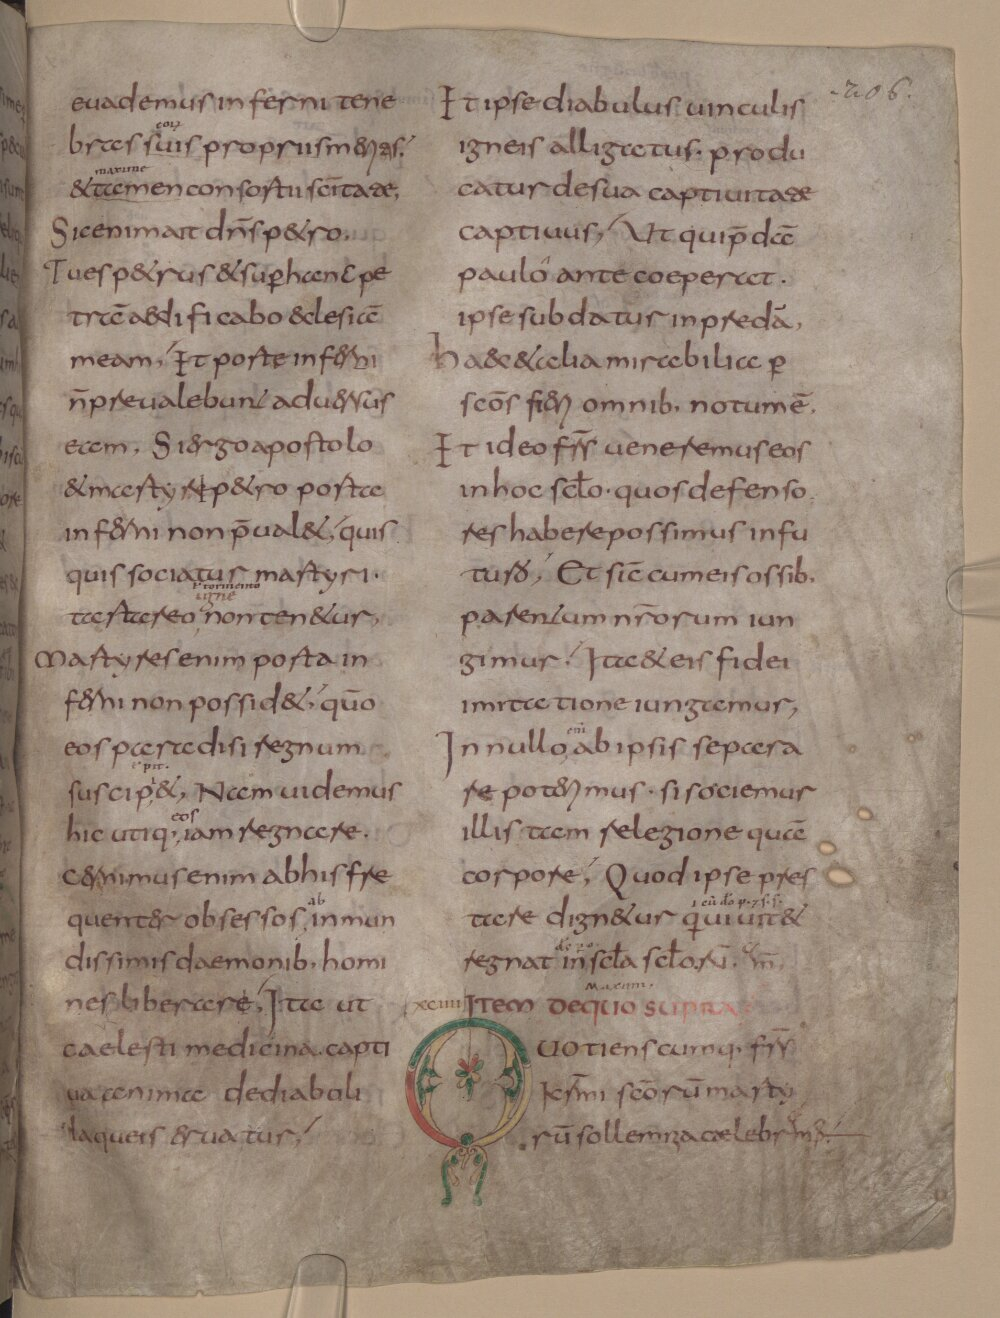 .206.
euademus inferni tene
bras suis propriis mer&as;
maxime
& tamen consortii scitatae,
Sic enim ait dns p&ro.
Tu es p&rus & sup hanc pe
tra aedificabo aeclesia
meam, Et portae inferni
n preualebunt aduersus
eam, Si ergo apostolo
& martyre p&ro portae
inferni non pual&, quis
quis sociatur martyri.
igne
tartareo non ten&ur,
Martyres enim porta in
ferni non possid&, quo
eos paradisi regnum
suscip&, Nam uidemus
eos
hic utiq; iam regnare.
Cernimus enim ab his fre
ab
quenter obsessos inmun
dissimis daemonib. homi
nes liberare, Ita ut
caelesti medicina. capti
ua anima de diaboli
laqueis eruatur,
Et ipse diabulus uinculis
igneis alligatus. produ
catur de sua captiuitatae
captiuus, Ut qui pda
paulo ante coeperat.
ipse subdatur in preda,
Haec & alia mirabilia p
scos fieri omnib. notum e.
Et ideo frs ueneremus eos
in hoc sclo. quos defenso
res habere possimus in fu
turo, Et sic cum eis ossib.
parentum nrorum iun
gimur, Ita & eis fidei
imitatione iungamur,
In nullo ab ipsis separa
re poterimus. si sociemur
illis tam relegione qua
corpore, Quod ipse pres
tare dign&ur qui uiu&
regnat in scla sclor.
Maxim.
xciiii Item de quo supra
Quotienscumq. frs
kmi scoru marty
ru sollemnia caelebr